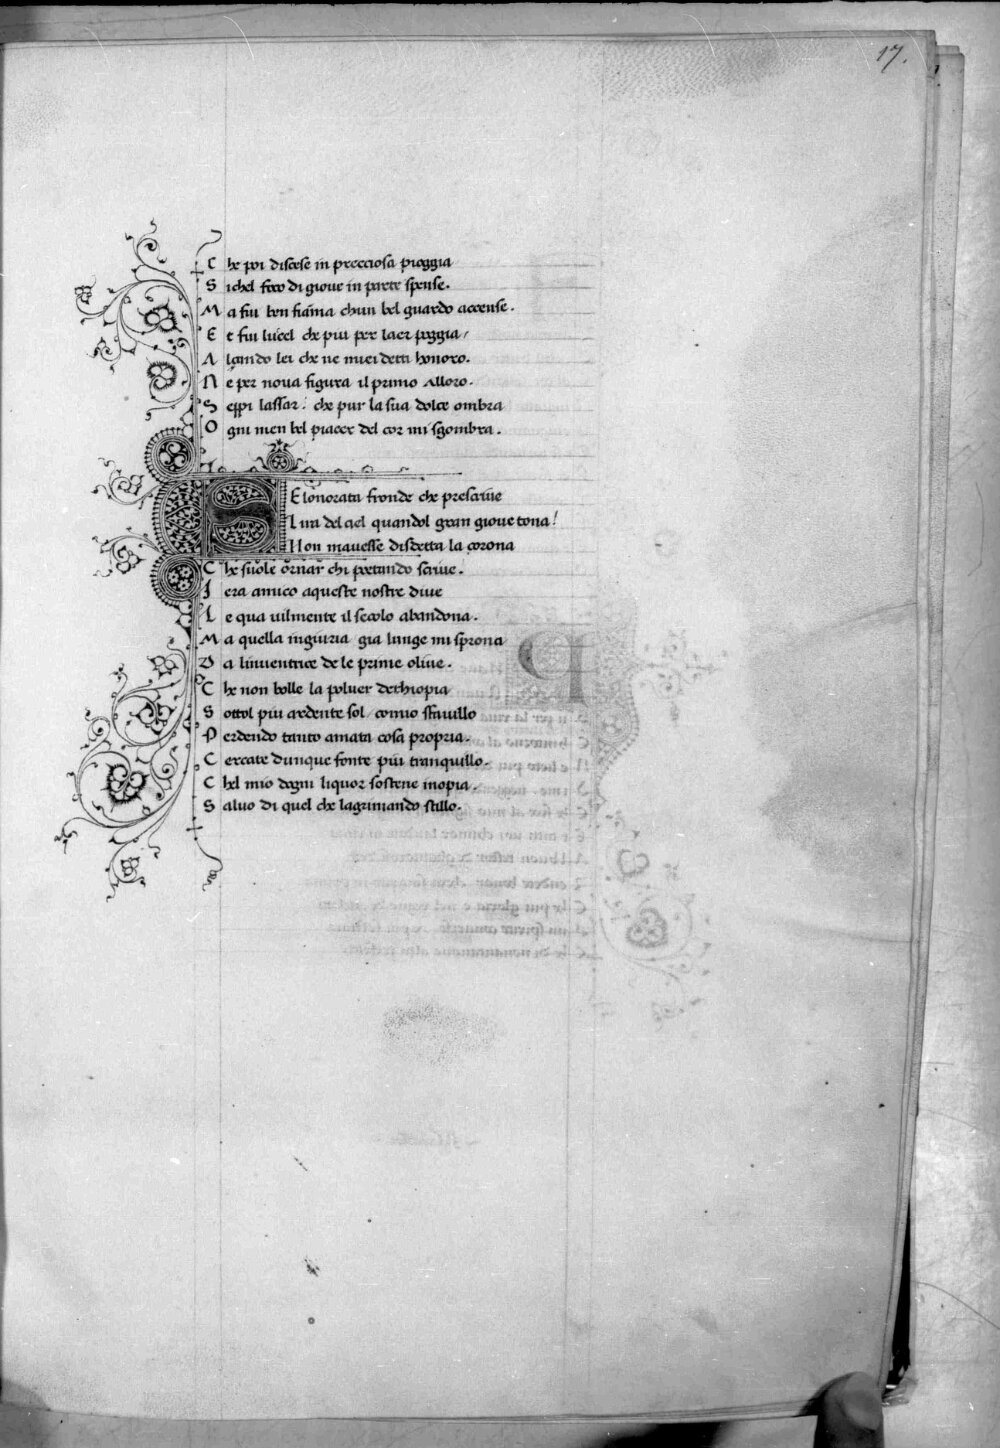 17.
Che poi discese in preciosa pioggia
Sichel foco di gioue in parte spense.
Ma fui ben fiāma chun bel guardo accense.
E e fui lucel che piu per laer poggia/
Alçando lei che ne miei detti honoro.
Ne per noua figura il primo Alloro.
Seppi lassar: che pur la sua dolce ombra
Ogni men bel piacer del cor mi sgombra.
SElonorata fronde che prescriue
Lira del ciel quandol gran gioue tona!
Non mauesse disdetta la corona
Che suole ornar chi poetando scriue.
Iera amico aqueste nostre diue
Le qua uilmente il secolo abandona.
Ma quella ingiuria gia lunge mi sprona
Da linuentrice de le prime oliue.
Che non bolle la poluer dethiopia
Sottol piu ardente sol/ comio sfauillo
Perdendo tanto amata cosa propria.
Cercate dunque fonte piu tranquillo.
Chel mio dogni liquor sostene inopia.
Saluo di quel che lagrimando stillo.